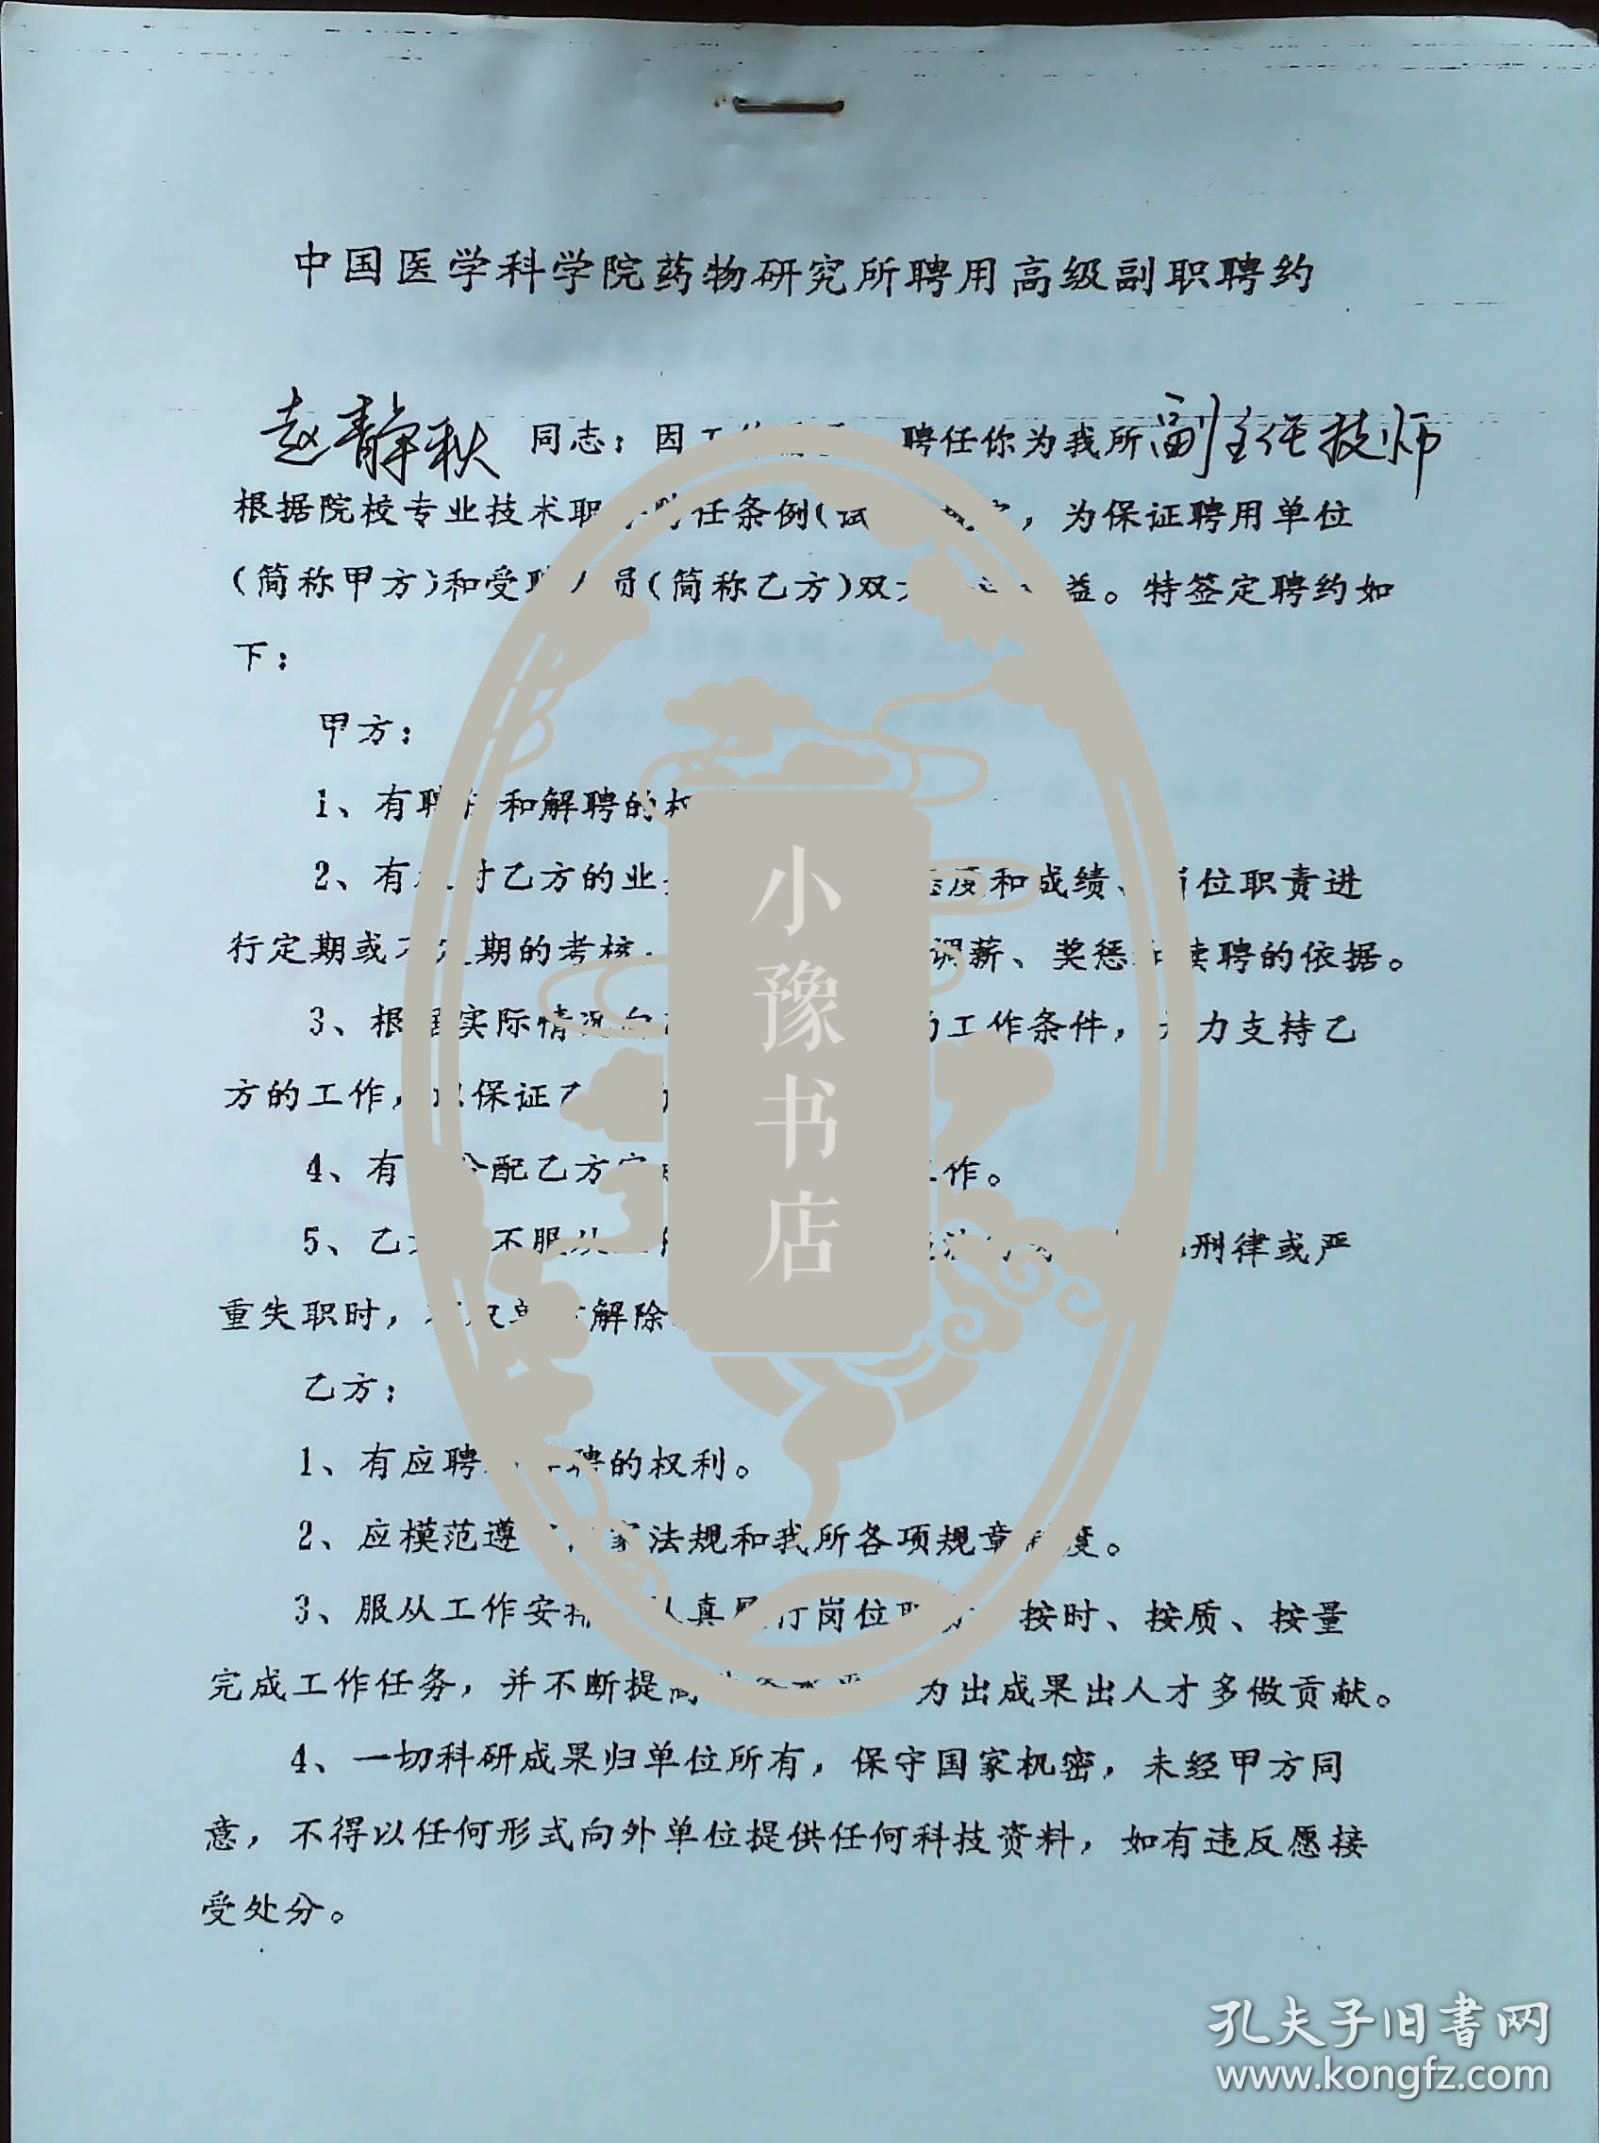 中国医学科学院药物研究所聘用高级副职聘约
赵静秋 同志：因工作需要 聘任你为我所副主任技师
根据院校专业技术职 聘任条例(试 ，为保证聘用单位
(简称甲方)和受聘人员(简称乙方)双方 益。特签定聘约如
下：
甲方：
1、有聘任和解聘的权
2、有权对乙方的业务 态度和成绩、岗位职责进
行定期或不定期的考核， 调薪、奖惩和续聘的依据。
3、根据实际情况向乙 的工作条件，大力支持乙
方的工作，以保证乙
4、有权分配乙方完成 工作。
5、乙方 不服从 刑律或严
重失职时，有权单方解除
乙方：
1、有应聘 聘的权利。
2、应模范遵守国家法规和我所各项规章制度。
3、服从工作安排，认真履行岗位职责，按时、按质、按量
完成工作任务，并不断提高业务水平，为出成果出人才多做贡献。
4、一切科研成果归单位所有，保守国家机密，未经甲方同
意，不得以任何形式向外单位提供任何科技资料，如有违反愿接
受处分。
小豫书店
孔夫子旧书网
www.kongfz.com